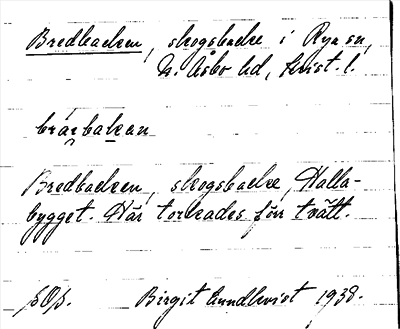 Bredbacken, skogsbacke i Rya sn,
N. Åsbo hd, Krist. l.
brǽbakan
Bredbacken, skogsbacke, Halla-
bygget. Här torkades förr tvätt.
Birgit Lundkvist 1938.